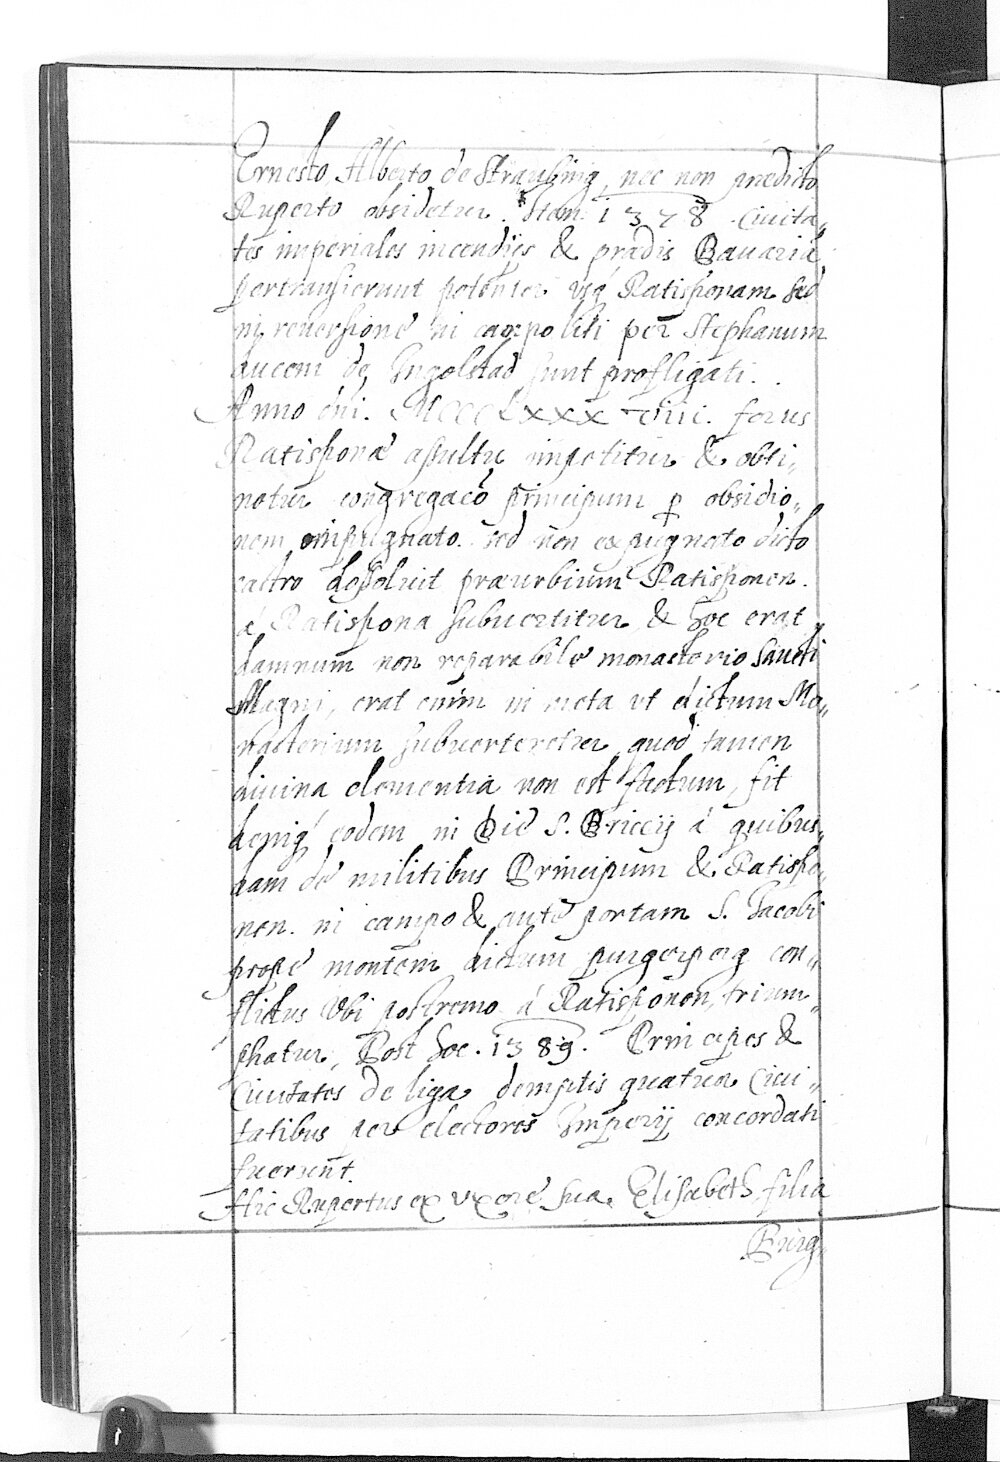 Ernesto, Alberto de Straubing, nec non predicto
Ruperto obsidetur. Item 1378 Ciuita„
tes imperiales incendijs & prædis Bauariā
pertransierunt potenter vsq́ Ratisponam sed
in reuersione in campo liti per Stephanum
ducem de Ingolstad sunt profligati.
Anno dni. MCCCLXXXVIII. forus
Ratisponæ assultu impetitur & obti„
netur congregacō principum p obsidio„
nem impugnato. sed non expugnato dicto
castro dissoluit præurbium Ratisponen.
á Ratispona subuertitur & hoc erat
damnum non reparabile monasterio Sancti
Magni, erat enim in meta vt dictum Mo„
nasterium subuerteretur quod tamen
diuina clementia non est factum, fit
deniq́ eodem in die S. Briccij á quibus„
dam de militibus Principum & Ratispo„
nen. in campo & ante portam S. Jacobi
prope montem dictum purgerperg con„
flictus Vbi postremo á Ratisponen, trium„
phatur, Post hoc. 1389. Principes &
Ciuitates de liga demptis quatuor Ciui„
tatibus per electores Imperij concordati
fuerunt.
Hic Rupertus ex vxore sua. Elisabeth filia
Burg„